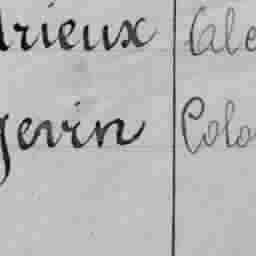 drieux Ale
gevin Colo